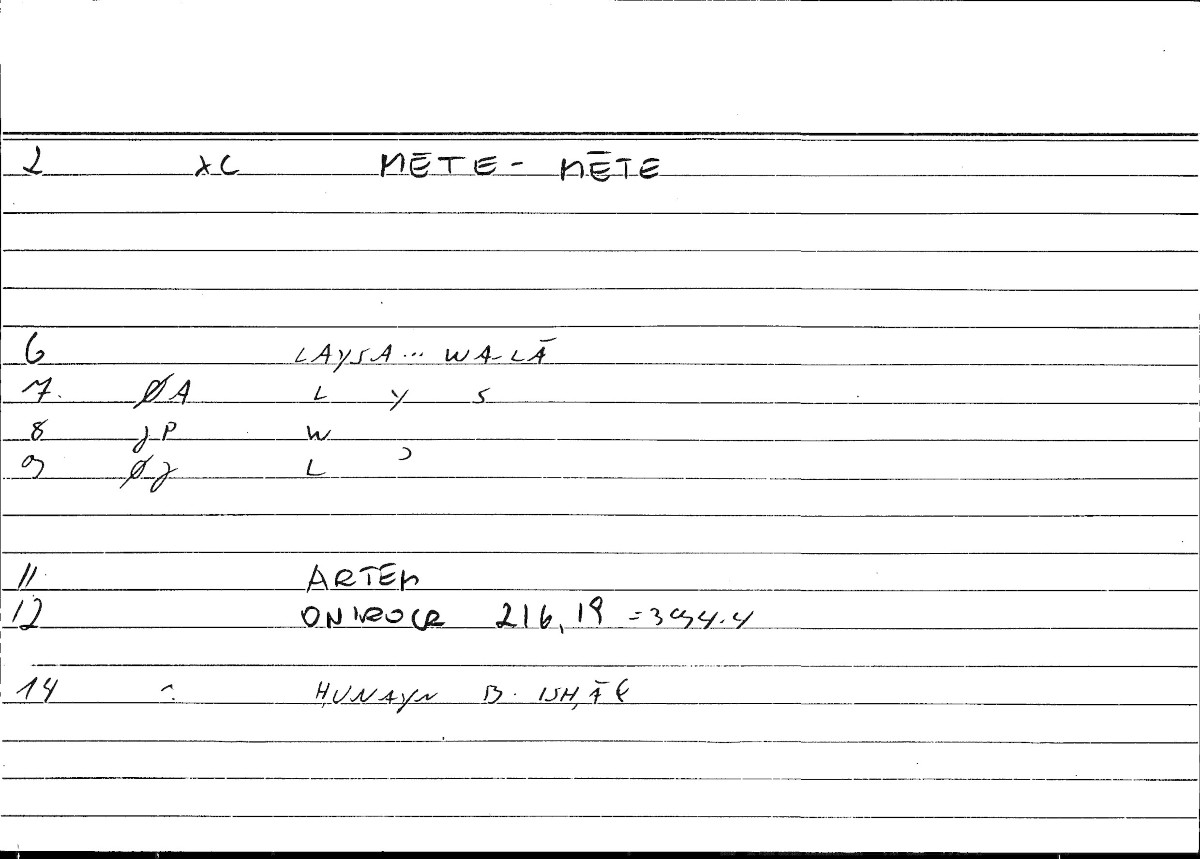 2 xc MĒTE - MĒTE
6 LAYSA... WA-LĀ
7. ØA L Y S
8 JP W
9 ØJ L ʾ
11 ARTEM
12 ONIROCR 216,19 = 394.4
14 ḤUNAYN B. ISḤĀQ